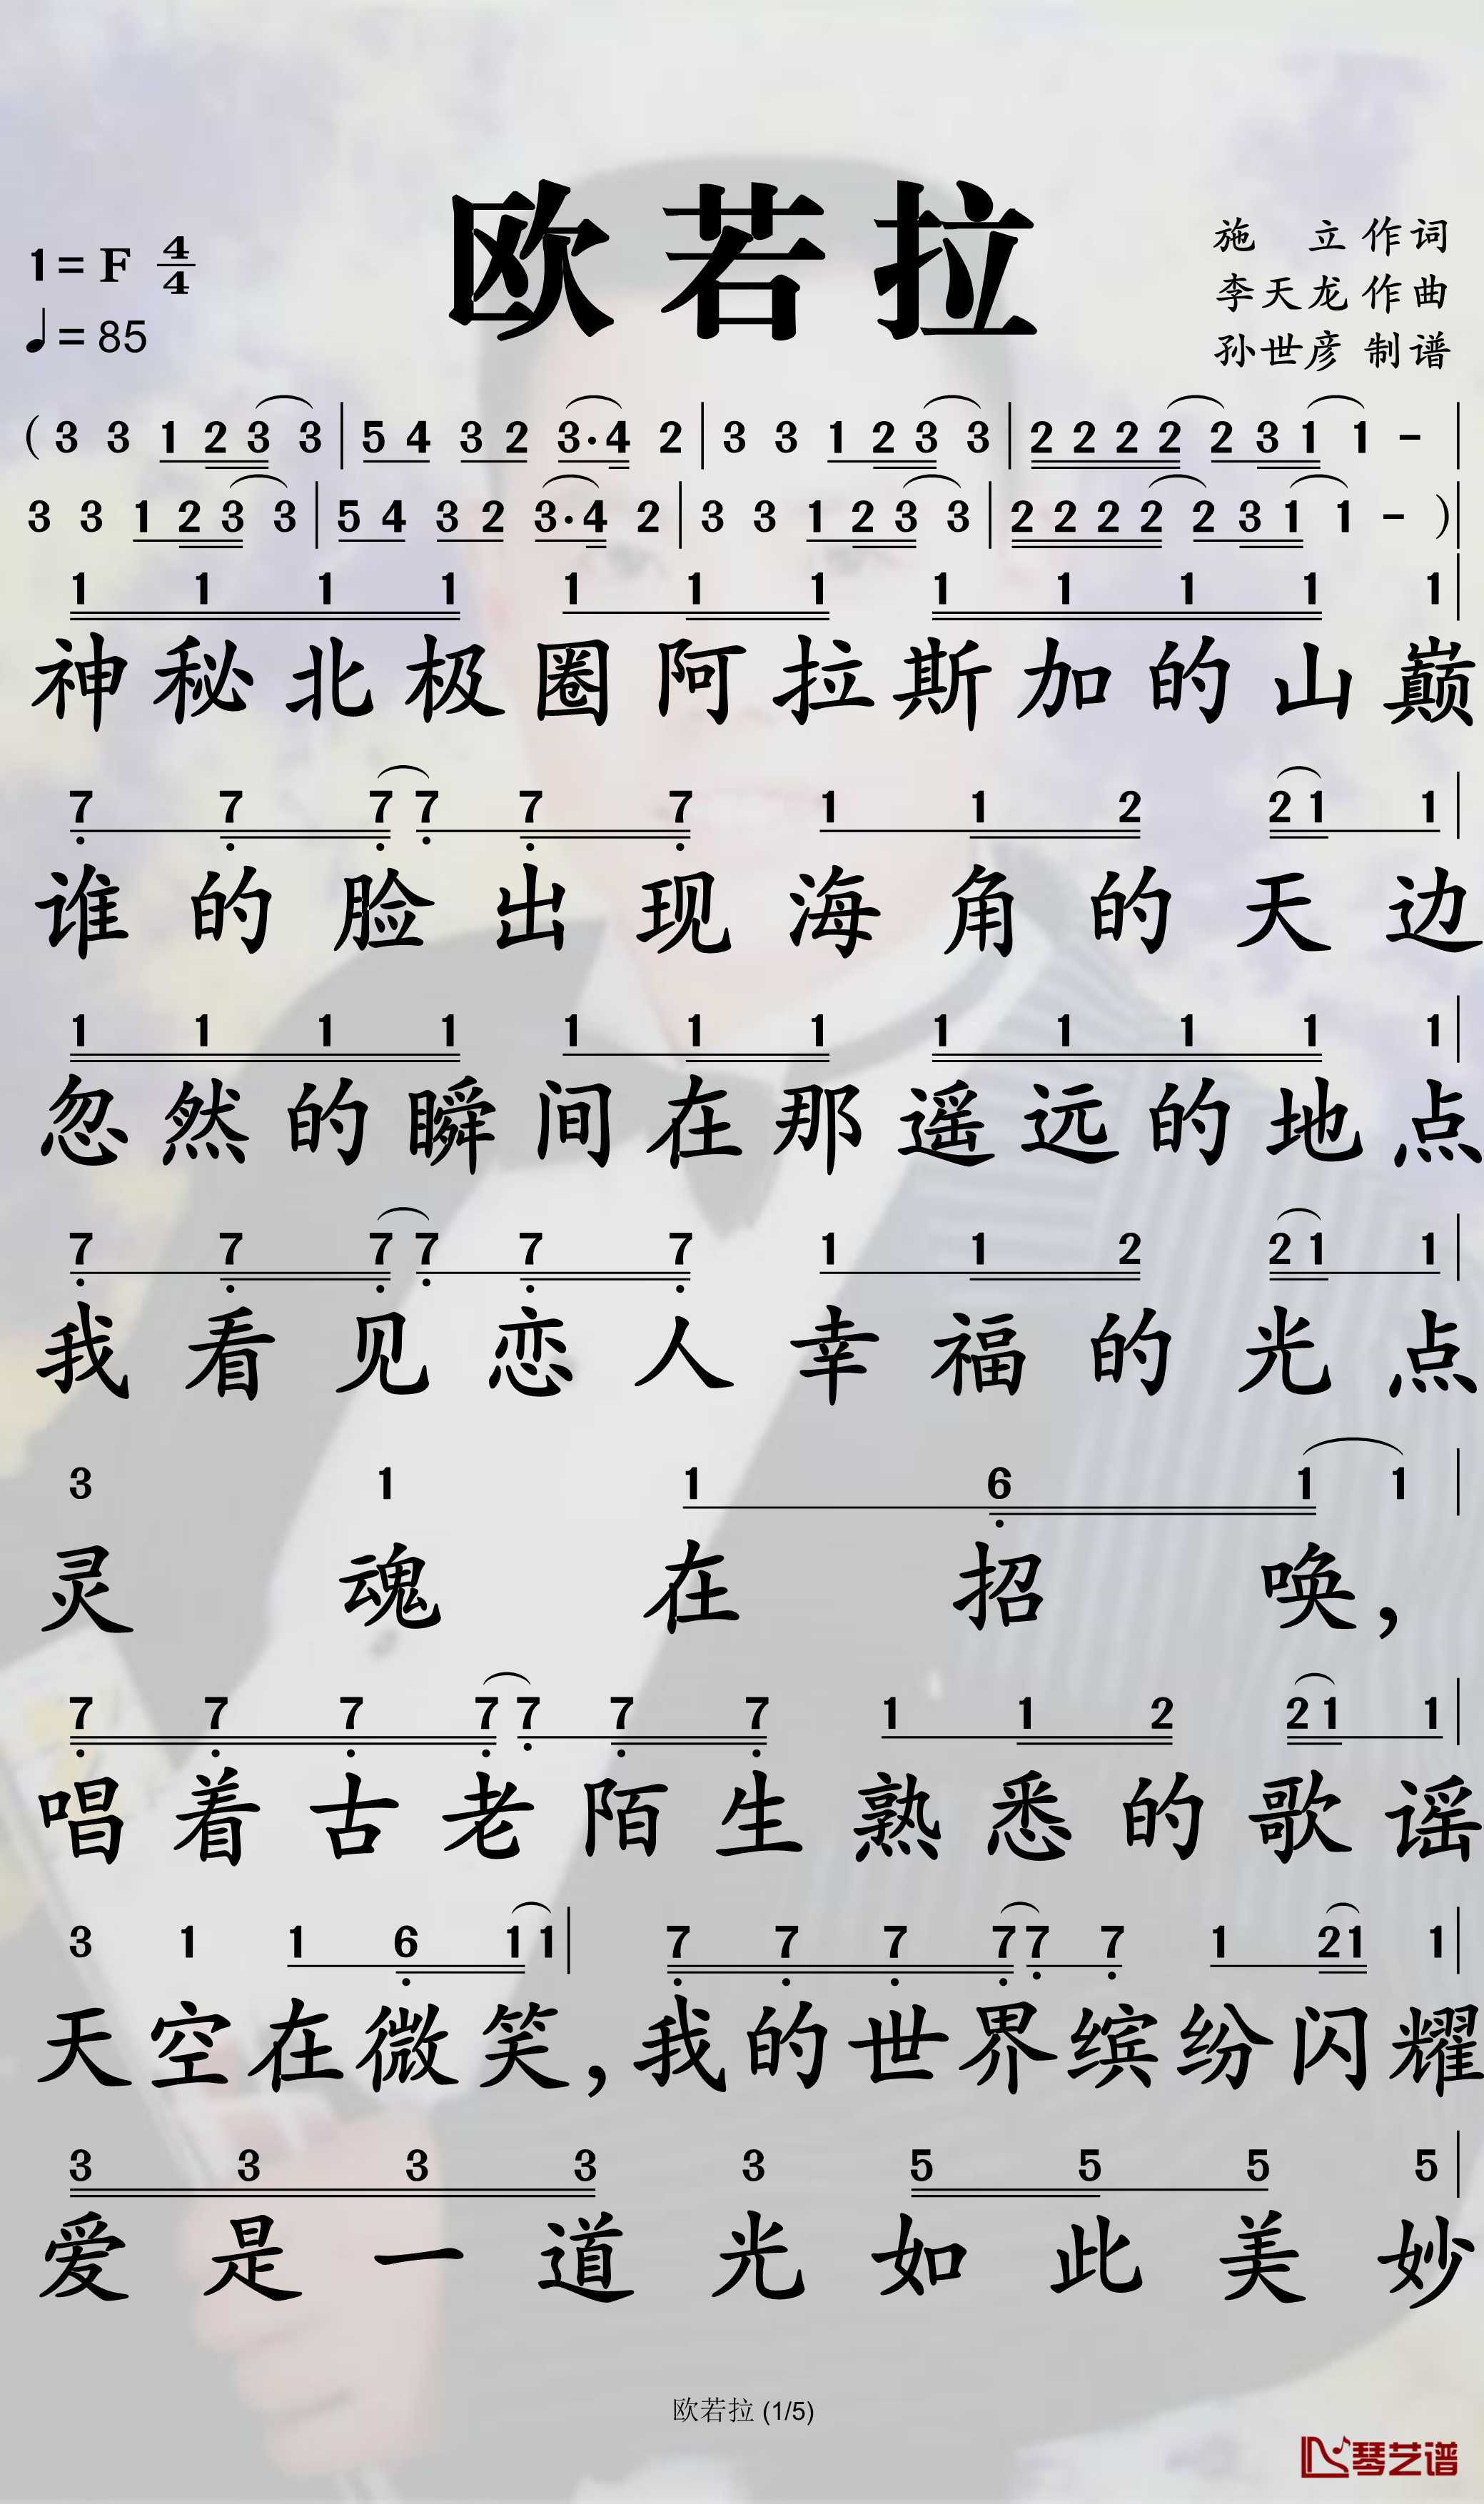 欧若拉
1=F 4/4
♩=85
施 立 作词
李天龙 作曲
孙世彦 制谱
( 3 3 1 2 3 3 | 5 4 3 2 3·4 2 | 3 3 1 2 3 3 | 2 2 2 2 2 3 1 1 - |
3 3 1 2 3 3 | 5 4 3 2 3·4 2 | 3 3 1 2 3 3 | 2 2 2 2 2 3 1 1 - ) |
1 1 1 1 1 1 1 1 1 1 1 1 |
神秘北极圈阿拉斯加的山巅
7 7 7 7 7 7 1 1 2 2 1 1 |
谁的脸出现海角的天边
1 1 1 1 1 1 1 1 1 1 1 1 |
忽然的瞬间在那遥远的地点
7 7 7 7 7 7 1 1 2 2 1 1 |
我看见恋人幸福的光点
3 1 1 6 1 1 |
灵魂在招唤，
7 7 7 7 7 7 7 1 1 2 2 1 1 |
唱着古老陌生熟悉的歌谣
3 1 1 6 1 1 | 7 7 7 7 7 7 1 2 1 1 |
天空在微笑，我的世界缤纷闪耀
3 3 3 3 3 5 5 5 5 |
爱是一道光如此美妙
欧若拉 (1/5)
琴艺谱